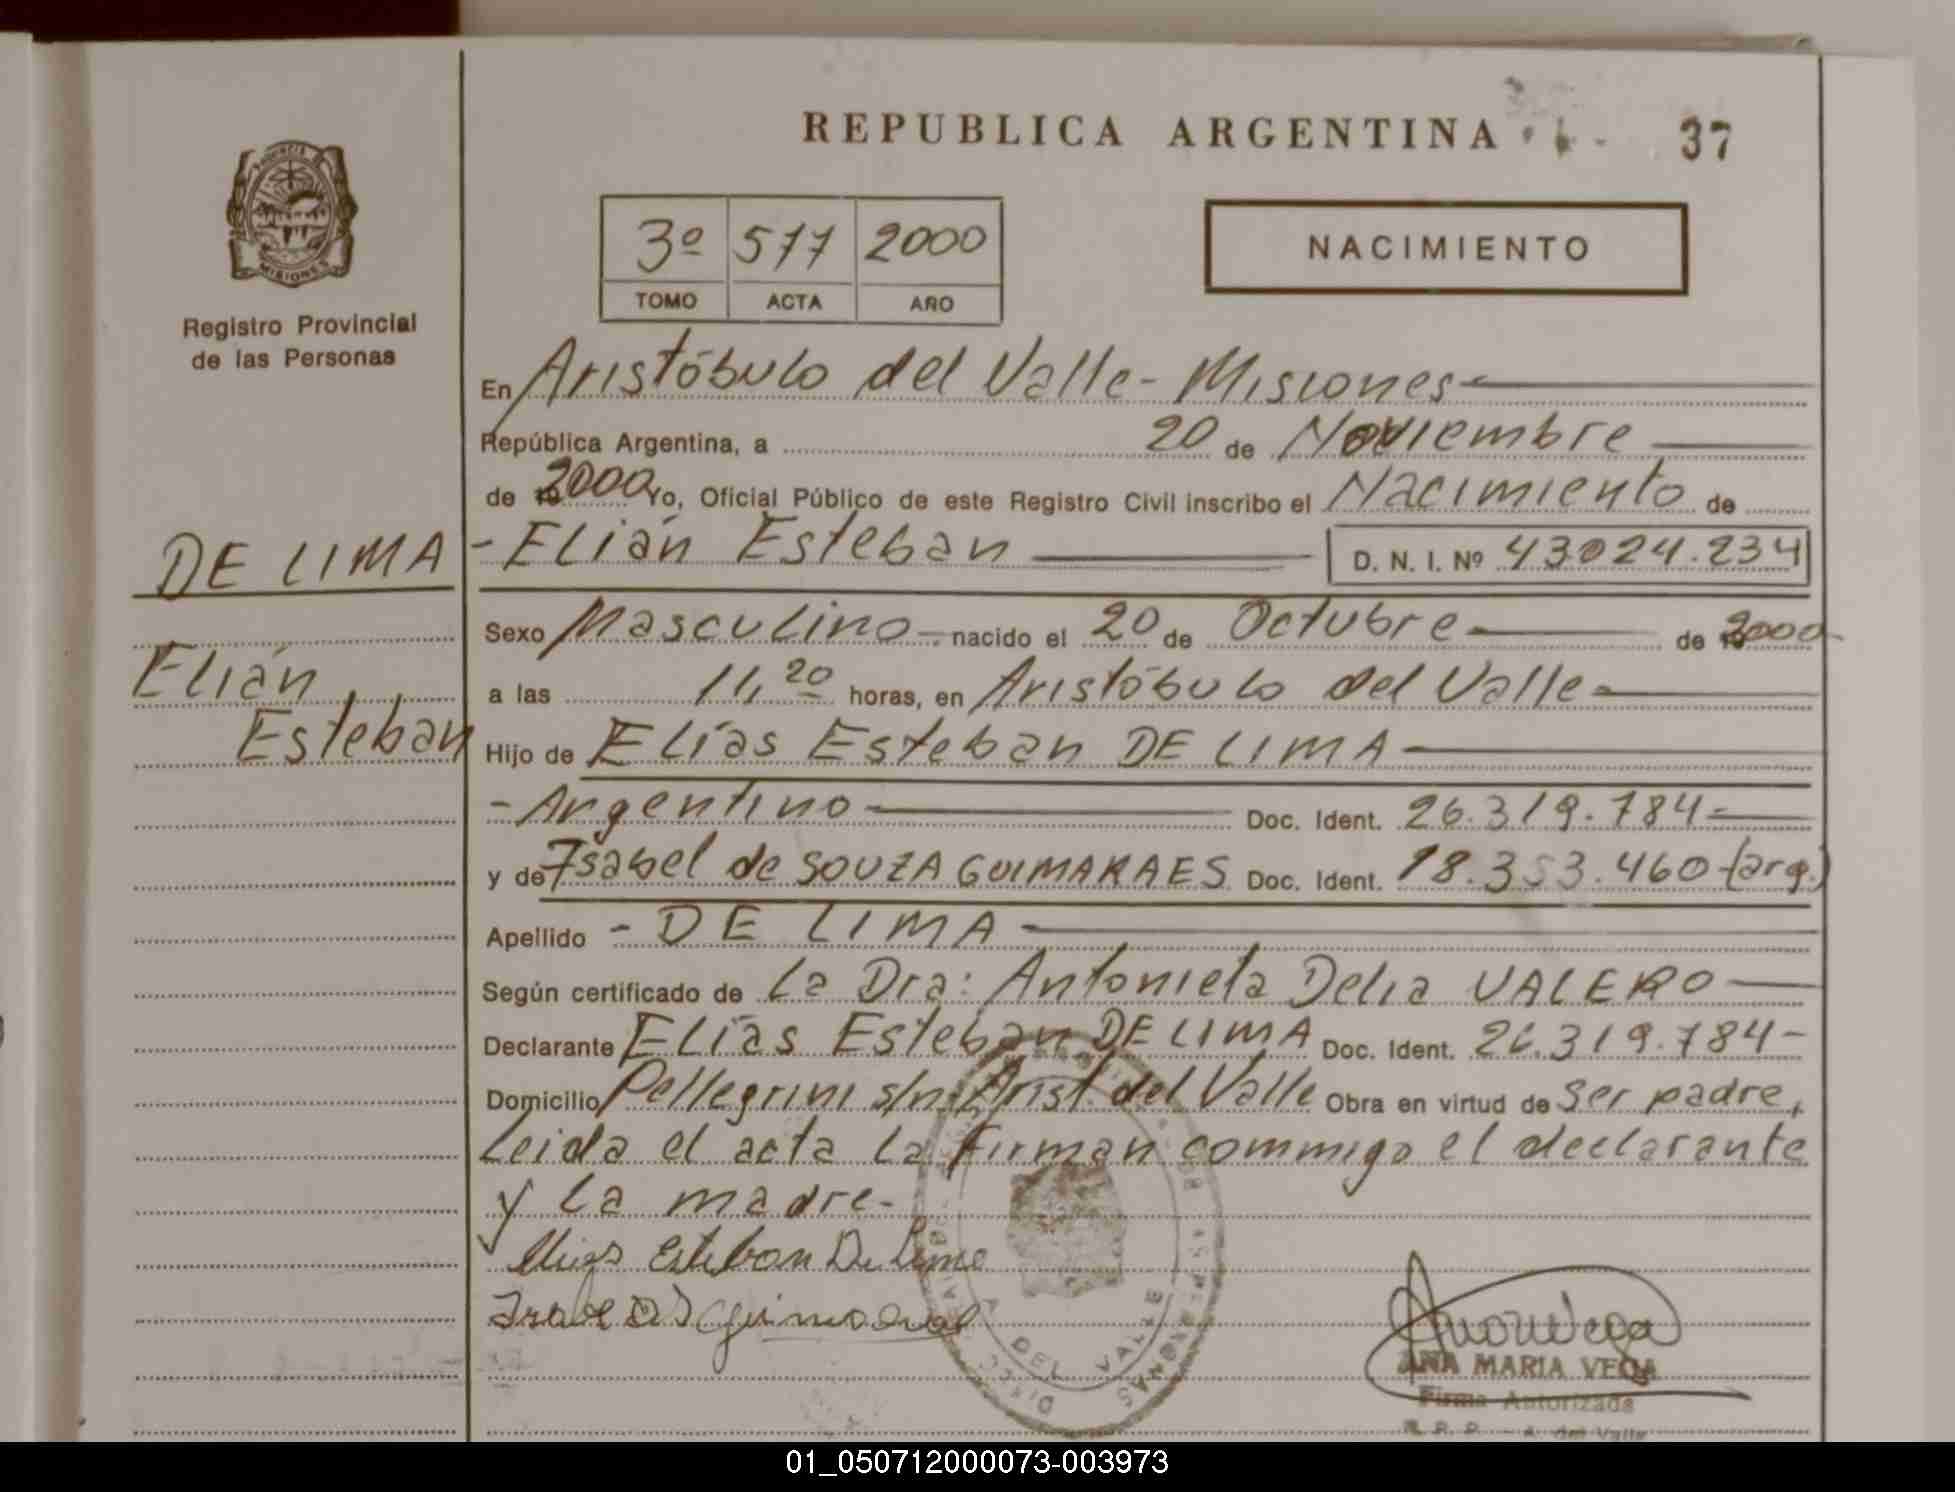 REPUBLICA ARGENTINA
37
PROVINCIA DE
MISIONES
Registro Provincial
de las Personas
3º 577 2000
TOMO ACTA AÑO
NACIMIENTO
En Aristóbulo del Valle - Misiones
República Argentina, a 20 de Noviembre
de 2000 Yo, Oficial Público de este Registro Civil inscribo el Nacimiento de
DE LIMA - Elián Esteban D. N. I. Nº 43024.234
Sexo Masculino nacido el 20 de Octubre de 2000
Elián
a las 11,20 horas, en Aristóbulo del Valle
Esteban
Hijo de Elías Esteban DE LIMA
- Argentino Doc. Ident. 26.319.784
y de Isabel de SOUZA GUIMARAES Doc. Ident. 18.353.460 (arg.)
Apellido - DE LIMA
Según certificado de La Dra: Antonieta Delia VALERO
Declarante Elías Esteban DE LIMA Doc. Ident. 26.319.784-
Domicilio Pellegrini s/n, Arist. del Valle Obra en virtud de ser padre,
Leida el acta la firman commigo el declarante
y la madre-
Elias Esteban De Lima
DEL VALLE
ANA MARIA VEGA
Firma Autorizada
R. P. P. - A. del Valle
01_050712000073-003973